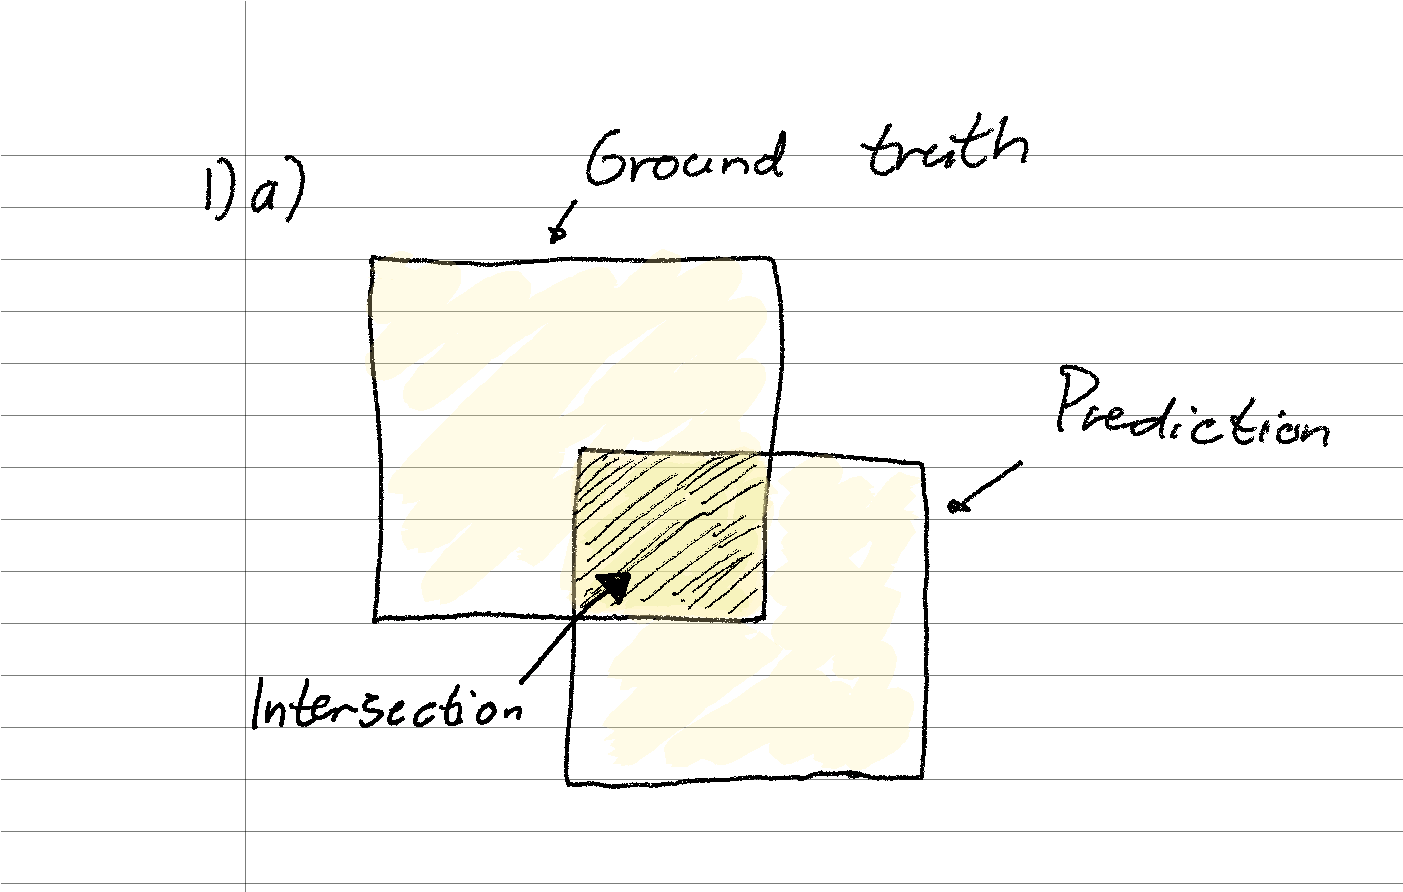 Ground truth
1) a)
Prediction
Intersection